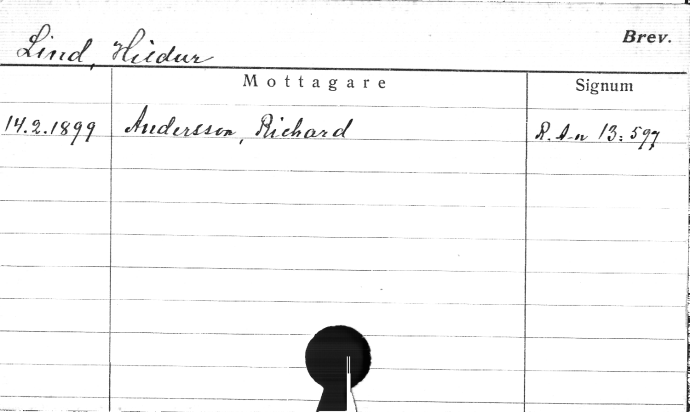 Brev.
Lind, Hildur
Mottagare
Signum
14.2.1899 Andersson, Richard R. A-n 13:597